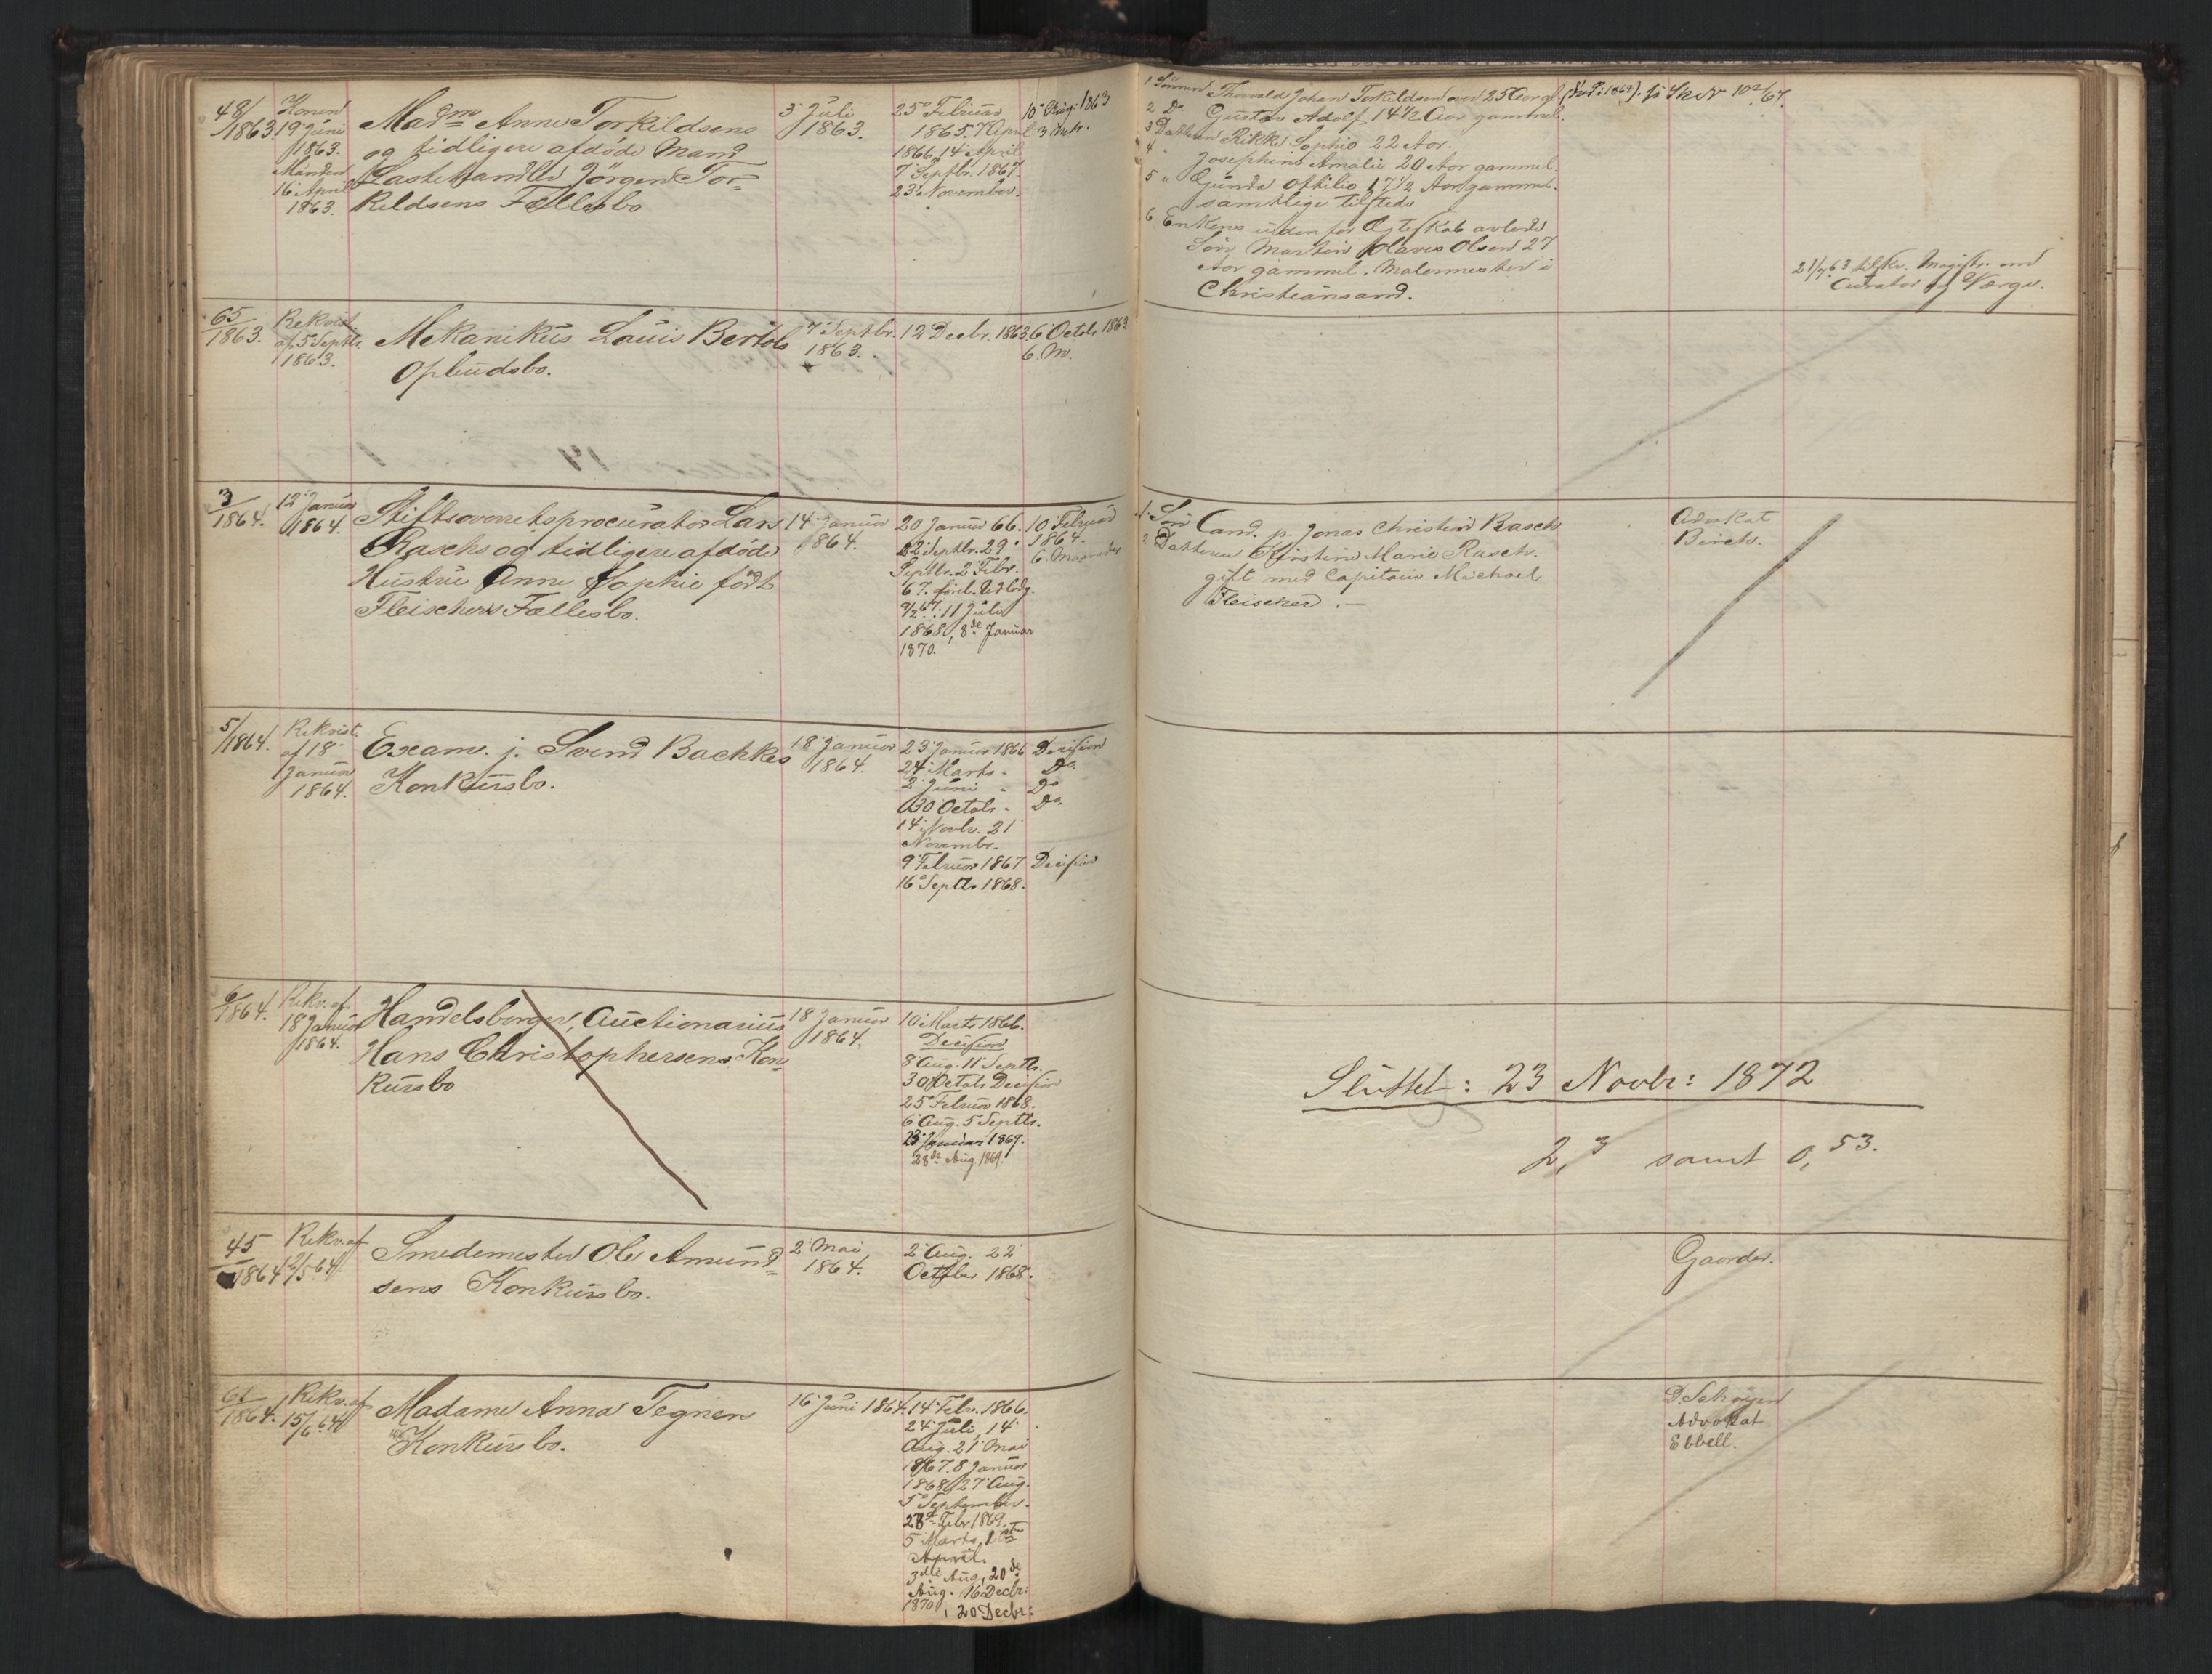 48/1863.
Konen
19 Juni
1863.
Manden
16 April
1863.
Madme Anne Torkildsens
og tidligere afdøde Mand
Lastehandler Jörgen Tor-
kildsens Fællesbo
3 Juli
1863.
25 Februar
1865. 7 April
1866, 14 April
7 Septbr. 1867.
23 November.
10 Aug: 1863
3 Mdr.
1 Sönnen Thorvald Johan Torkildsen over 25 Aar gl.
2 Do Gustav Adolf 14 1/2 Aar gammel.
3 Datteren Rikke Sophie 22 Aar.
4 " Josephine Amalie 20 Aar gammel.
5 " Gunda Othilie 17 1/2 Aar gammel.
samtlige tilstede
6 Enkens uden for Ægteskab avlede
Sön Martin Olaves Olsen 27
Aar gammel. Malermester i
Christiansand.
21/7 63 tilskr. Magistr. om
Curator og Værge.
65/1863.
Rekvist.
af 5 Septbr.
1863.
Mekanikus Louis Bertols
Opbudsbo.
7 Septbr.
1863.
12 Decbr. 1863
6 Octobr 1863
6 M.
3/1864.
12 Januar
1864.
Stiftsoverretsprocurator Lars
Raschs og tidligere afdøde
Hustru Anne Sophie födt
Fleischers Fællesbo.
14 Januar
1864.
20 Januar 66.
22 Septbr. 29
Septbr. 2 Febr.
67. forel. Udlodg.
9/2 67. 11 Juli
1868, 8de Januar
1870.
10 Februar
1864.
6 Maaneder
1. Sön Cand. p. Jonas Christian Rasch
2 Datteren Kirstine Marie Rasch.
gift med Capitain Michael
Fleischer. —
Advokat
Birch.
5/1864.
Rekvist
af 18
Januar
1864.
Exam. j. Svend Bachkes
Konkursbo.
18 Januar
1864.
23 Januar 1866 Decision
24 Marts - Do
2 Juni - Do
30 Octobr - Do.
14 Novbr. 21
Novembr.
9 Februar 1867 Decision
16 Septbr 1868.
6/1864.
Rekv. af
18 Januar
1864.
Handelsborger, Auctionarius
Hans Christophersens Kon-
kursbo
18 Januar
1864.
10 Marts 1866.
Decision
8 Aug. 11 Septbr.
30 Octobr Decision
25 Februar 1868.
6 Aug. 5 Septbr.
23 Januar 1869.
28de Aug 1869.
Sluttet: 23 Novbr: 1872
2,3 samt 0,53.
45/1864
Rekv. af
2/5 64
Smedemester Ole Amund-
sens Konkursbo.
2 Mai
1864.
2 Aug. 22
October 1868.
Gaarder.
61/1864.
Rekv. af
15/6 64
Madame Anna Tegners
Konkursbo.
16 Juni 1864.
14 Febr. 1866.
24 Juli, 14
Aug. 21 Mai
1867. 8 Januar
1868, 27 Aug.
5 September.
28de Febr 1869.
5 Marts, 1ste
April.
3die Aug, 20de
Aug. 16 Decbr:
1870, 20 Decbr:
D. Schøyen
Advokat
Ebbell.